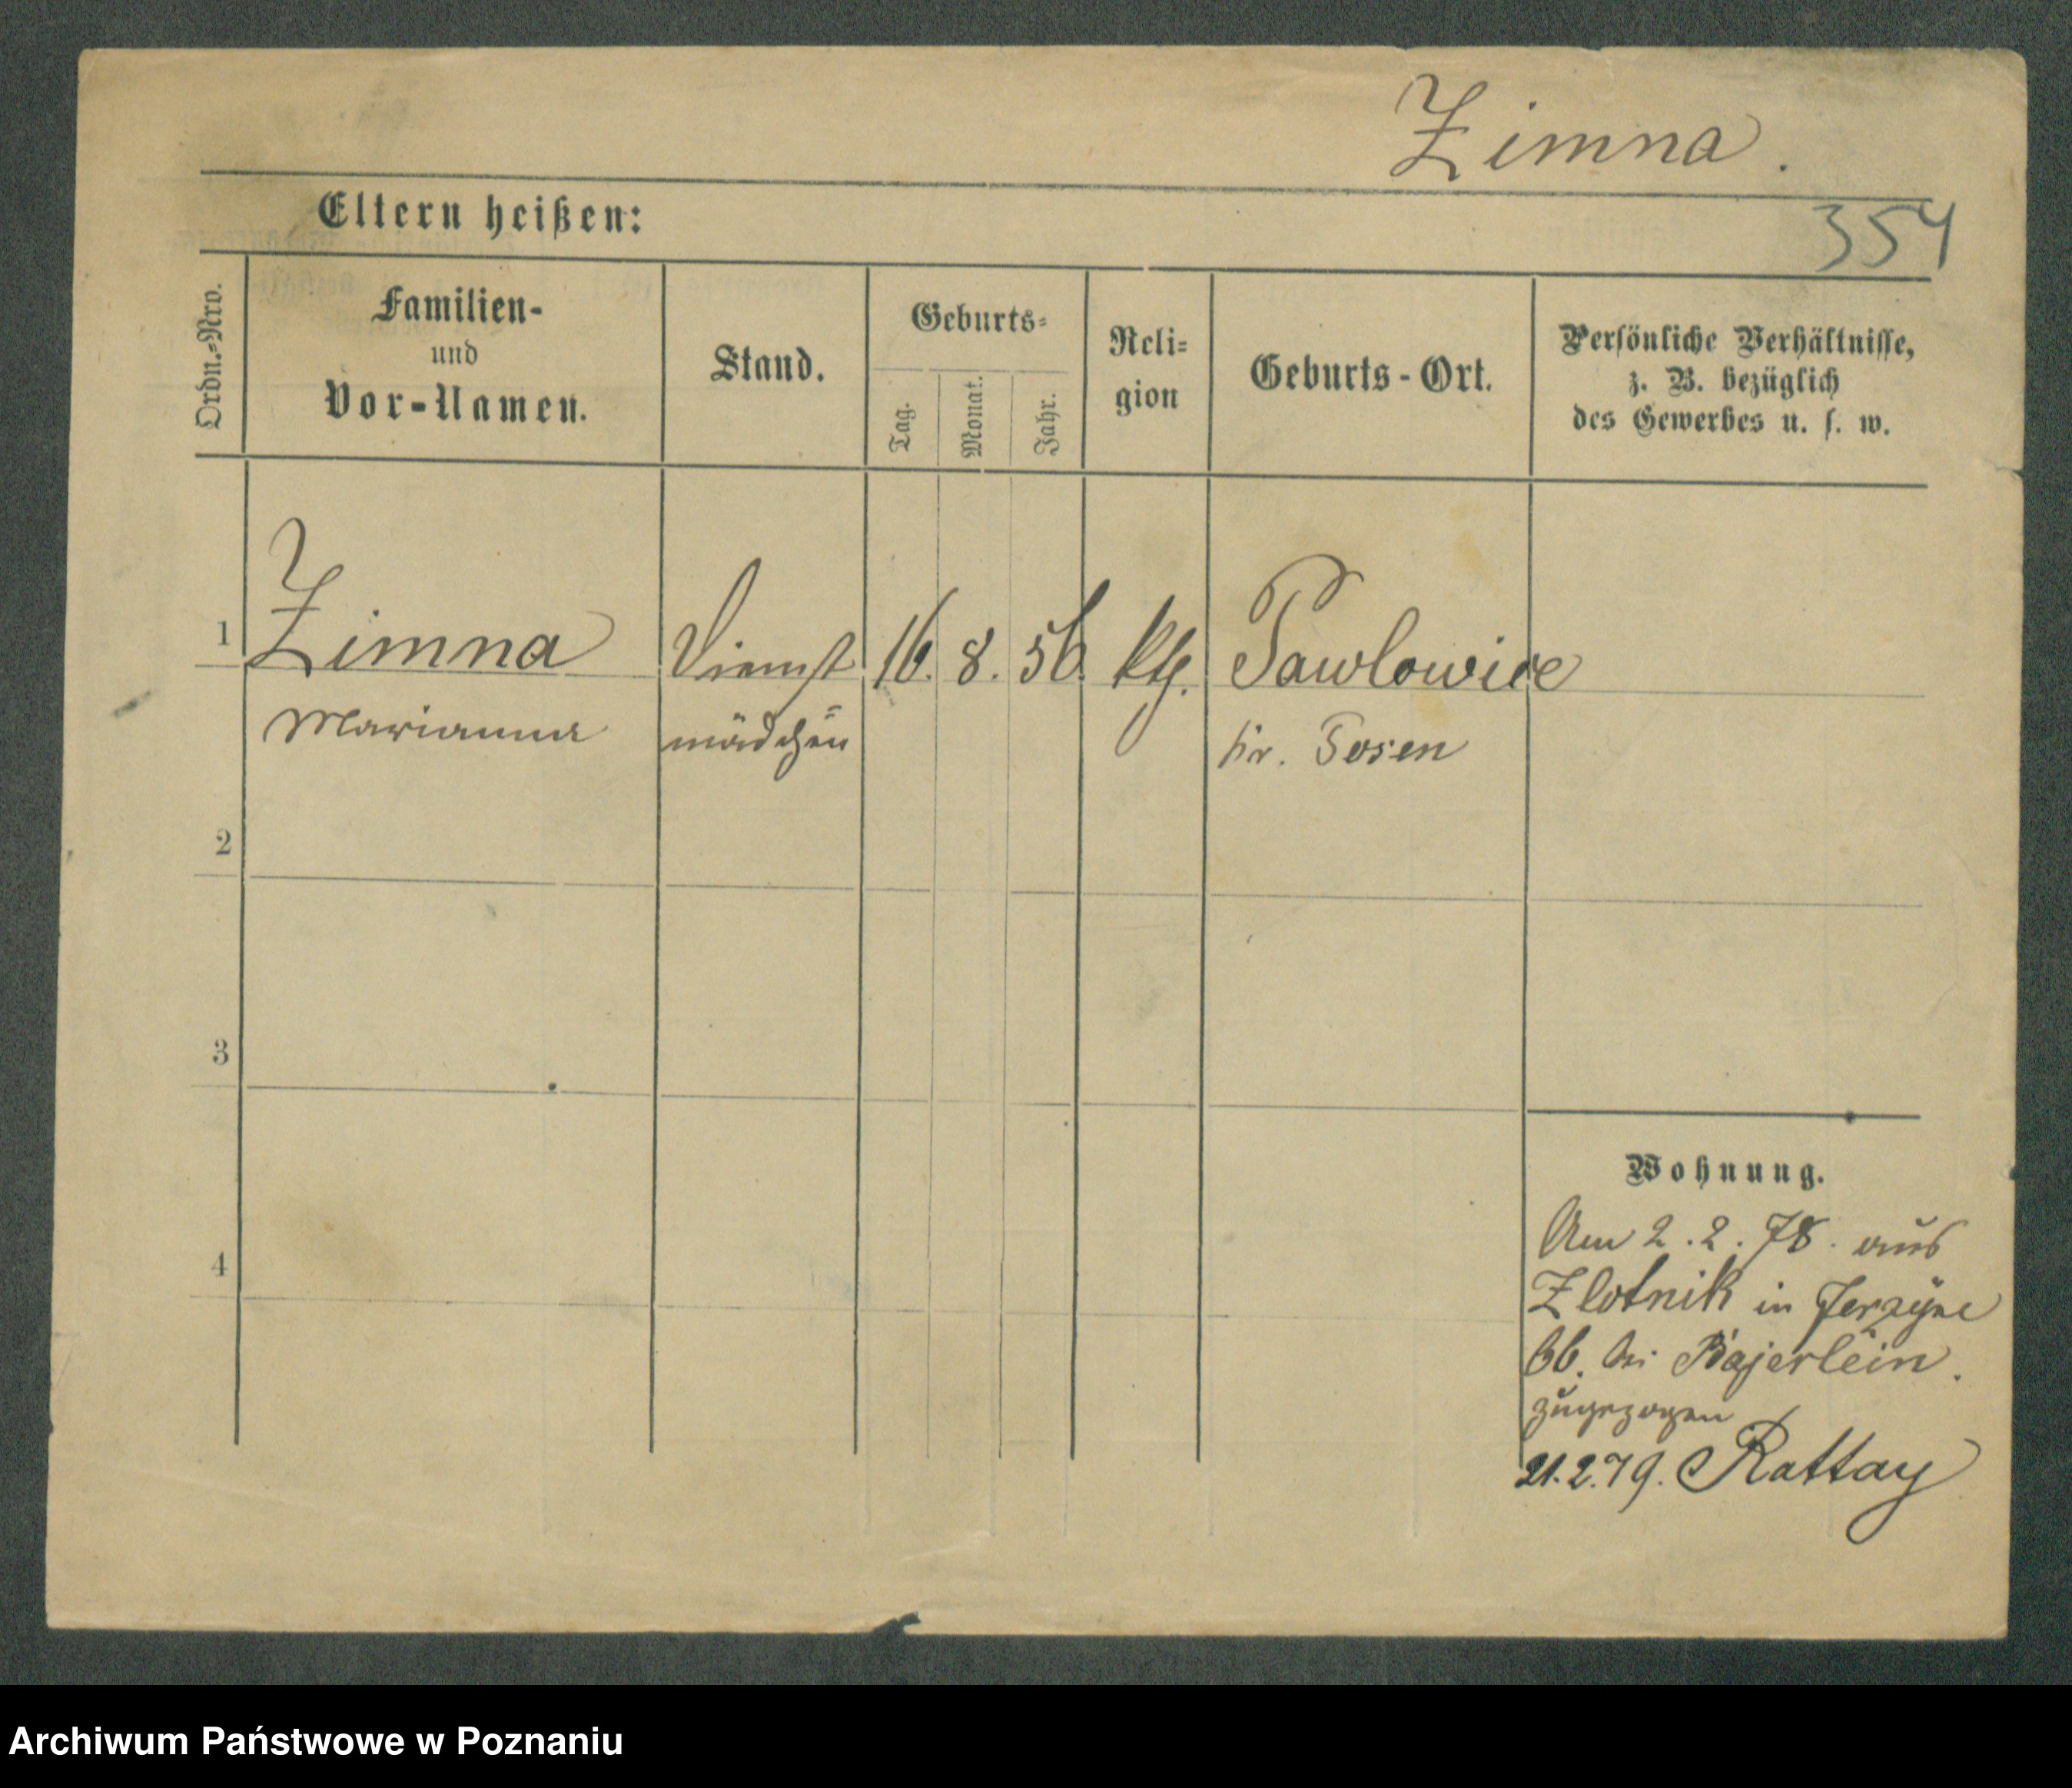 Zimna.
354
Eltern heißen:
Ordn.-Nro.
Familien-
und
Vor-Namen.
Stand.
Geburts-
Tag.
Monat.
Jahr.
Reli-
gion
Geburts-Ort.
Persönliche Verhältnisse,
z. B. bezüglich
des Gewerbes u. s. w.
1 Zimna Dienst 16. 8. 56. kth. Pawlowice
Marianna mädchen Kr. Posen
2
3
4
Wohnung.
Am 2. 2. 78. aus
Zlotnik in Jerzyce
66. bei Bajerlein.
zugezogen
21.2.79. Rattay
Archiwum Państwowe w Poznaniu